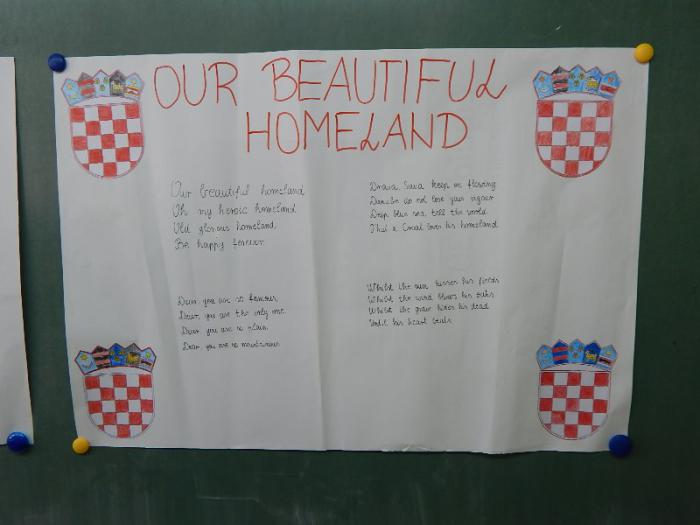 OUR BEAUTIFUL
HOMELAND
Our beautiful homeland
Oh my heroic homeland
Old glorious homeland
Be happy forever
Dear, you are so famous,
Dear, you are the only one
Dear, you are so plain,
Dear, you are so mountainous
Drava, Sava keep on flowing
Danube do not lose your vigour
Deep blue sea, tell the world
That a Croat loves his homeland
Whilst the sun kisses his fields
Whilst the wind blows his oaks
Whilst the grave hides his dead
Until his heart beats